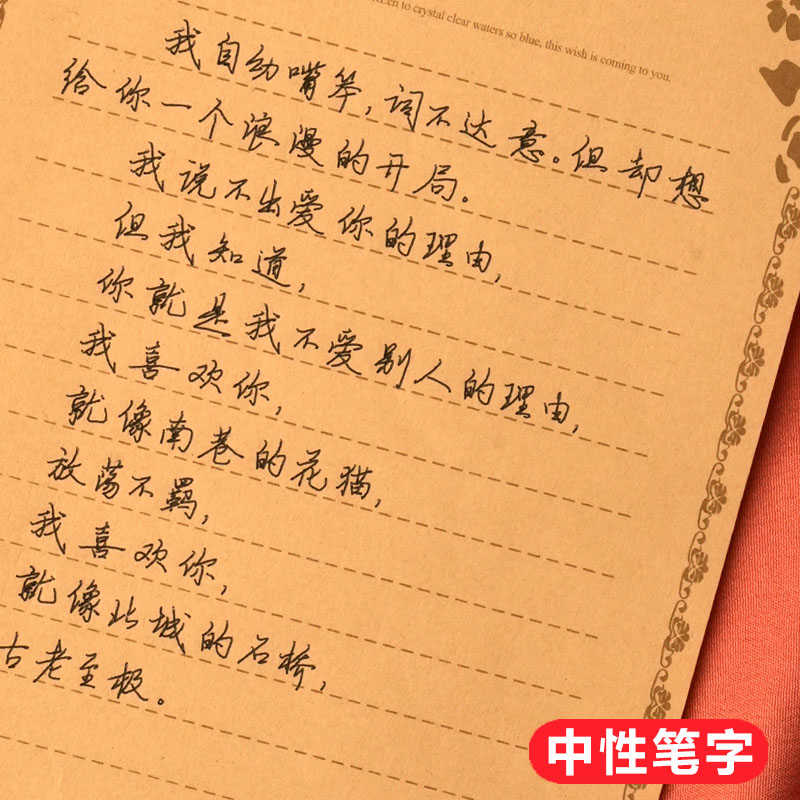 to crystal clear waters so blue, this wish is coming to you.
我自动嘴笨,词不达意。但却想
给你一个浪漫的开局。
我说不出爱你的理由,
但我知道,
你就是我不爱别人的理由,
我喜欢你,
就像南巷的花猫,
放荡不羁,
我喜欢你,
就像北城的石桥,
古老至极。
中性笔字